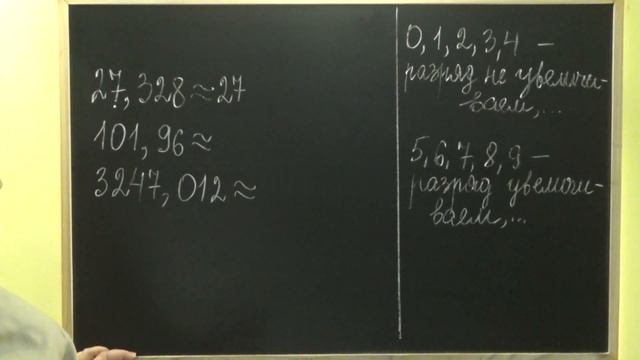 27,328 ≈ 27
101,96 ≈
3247,012 ≈
0, 1, 2, 3, 4 —
разряд не увеличи-
ваем,...
5, 6, 7, 8, 9 —
разряд увеличи-
ваем,...